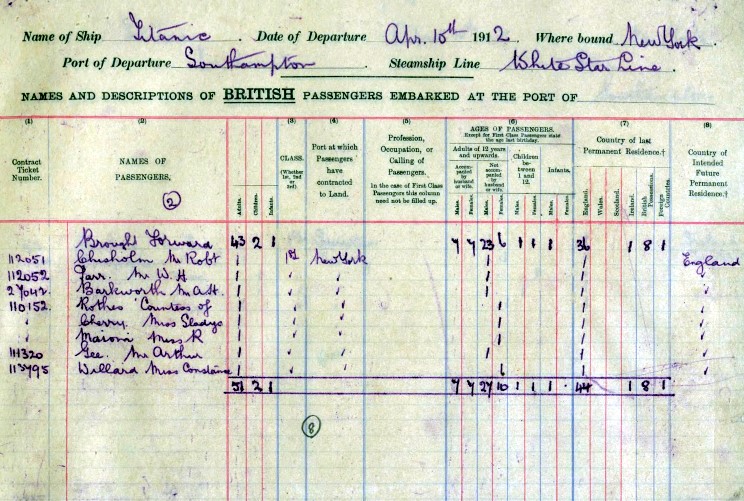 Name of Ship Titanic. Date of Departure Apr. 10th 1912 Where bound New York.
Port of Departure Southampton Steamship Line White Star Line.
NAMES AND DESCRIPTIONS OF BRITISH PASSENGERS EMBARKED AT THE PORT OF
(1) (2) (3) (4) (5) (6) (7) (8)
Contract Ticket Number.
NAMES OF PASSENGERS.
2
Adults.
Children.
Infants.
CLASS. (Whether 1st, 2nd or 3rd)
Port at which Passengers have contracted to Land.
Profession, Occupation, or Calling of Passengers.
In the case of First Class Passengers this column need not be filled up.
AGES OF PASSENGERS.
Except for First Class Passengers state the age last birthday.
Adults of 12 years and upwards.
Accompanied by husband or wife.
Not accompanied by husband or wife.
Children between 1 and 12.
Infants.
Males. Females. Males. Females. Males. Females. Males. Females.
Country of last Permanent Residence.†
England. Wales. Scotland. Ireland. British Possessions. Foreign Countries.
Country of Intended Future Permanent Residence.†
Brough Forward 43 2 1 7 7 23 6 1 1 1 36 1 8 1
112051 Chisholm Mr Robt 1 1st New York 1 1 England
112052 Parr. Mr W. H 1 " " 1 1 "
27042 Barkworth Mr A.H. 1 " " 1 1 "
110152 Rothes Countess of 1 " " 1 1 "
" Cherry Miss Gladys 1 " " 1 1 "
" Maioni Miss R 1 " " 1 1 "
111320 Gee. Mr Arthur 1 " " 1 1 "
113795 Willard Miss Constance 1 " " 1 1 "
51 2 1 7 7 27 10 1 1 1 . 44 1 8 1
8